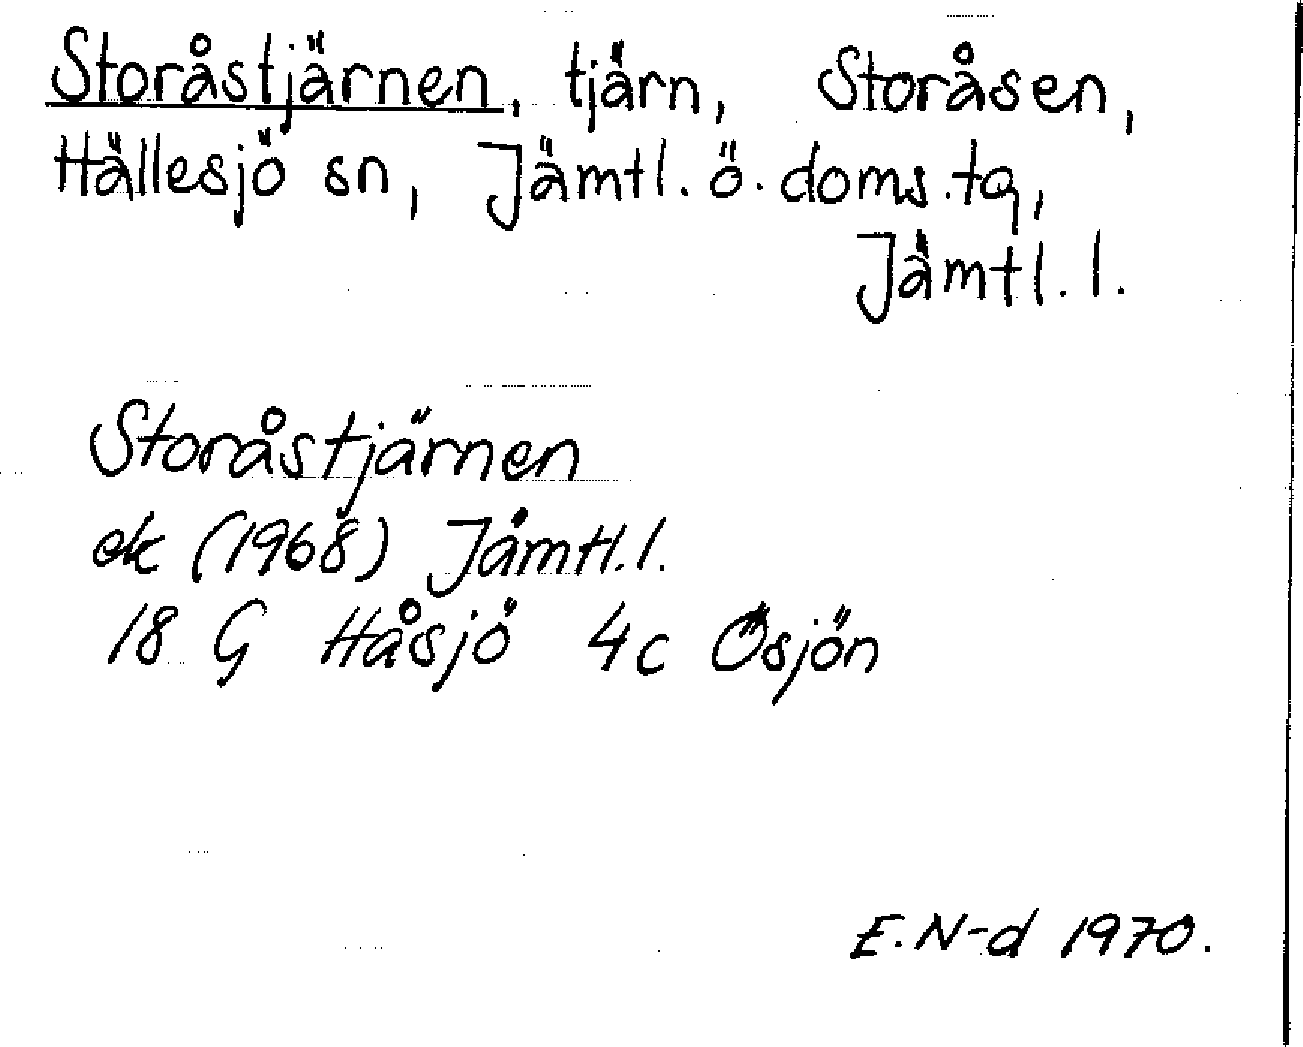 Storåstjärnen, tjärn, Storåsen,
Hällesjö sn, Jämtl. ö. doms.tg,
Jämtl. l.
Storåstjärnen
ek (1968) Jämtl. l.
18 G Håsjö 4c Ösjön
E. N-d 1970.